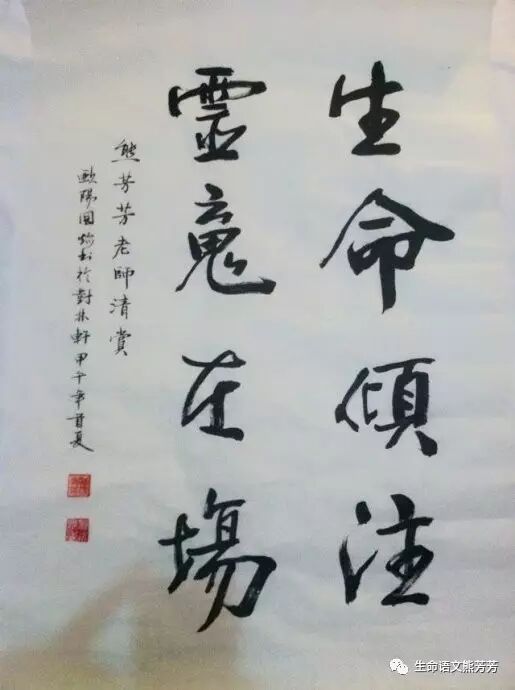 生命傾注
靈魂在場
熊芳芳老師清賞
歐陽國 書於對林軒甲午年首夏
生命语文熊芳芳